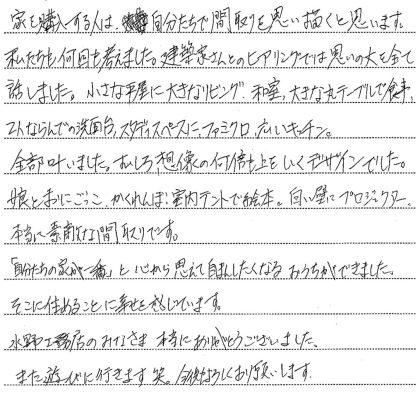 家を購入する人は、自分たちで間取りを思い描くと思います。
私たちも何回も考えました。建築家さんとのヒアリングでは思いの丈を全て
話しました。小さな平屋に大きなリビング、和室、大きな丸テーブルで食事、
2人ならんでの洗面台、スタディスペースに、ファミクロ、広いキッチン。
全部叶いました。むしろ想像の何倍も上をいくデザインでした。
娘とおにごっこ、かくれんぼ、室内テントで絵本。白い壁にプロジェクター。
本当に素敵な間取りです。
「自分たちの家が一番」と心から思えて自まんしたくなるおうちができました。
そこに住めることに幸せを感じています。
水野工務店のみなさま 本当にありがとうございました。
また遊びに行きます 笑。今後もよろしくお願いします。